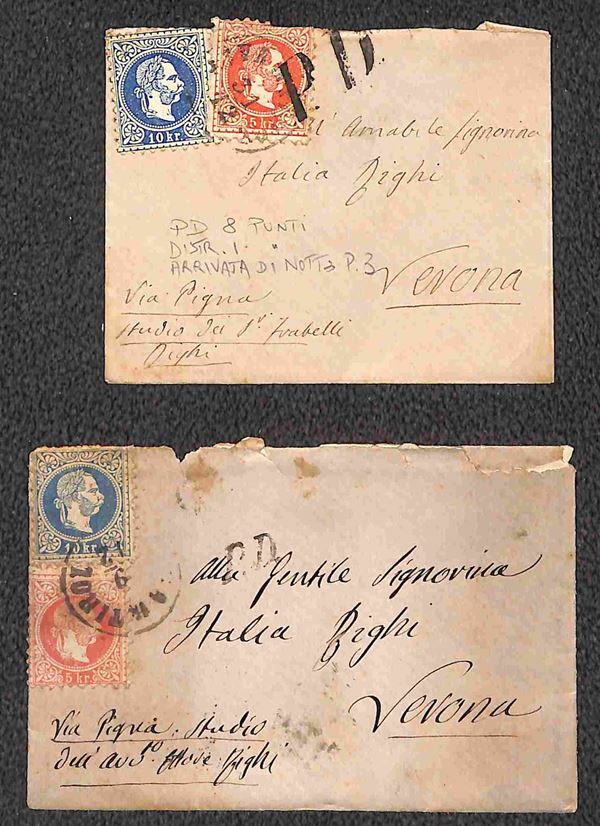 10 kr.
5 kr.
PD
all' Amabile Signorina
Italia Righi
PD 8 PUNTI
DISTR. 1. "
ARRIVATA DI NOTTE P. 3
Verona
Via Pigna
Studio dei Sr. Fratelli
Righi
10 kr.
5 kr.
P.D.
alla Gentile Signorina
Italia Righi
Verona
Via Pigna. Studio
dell' avo. Ettore Righi